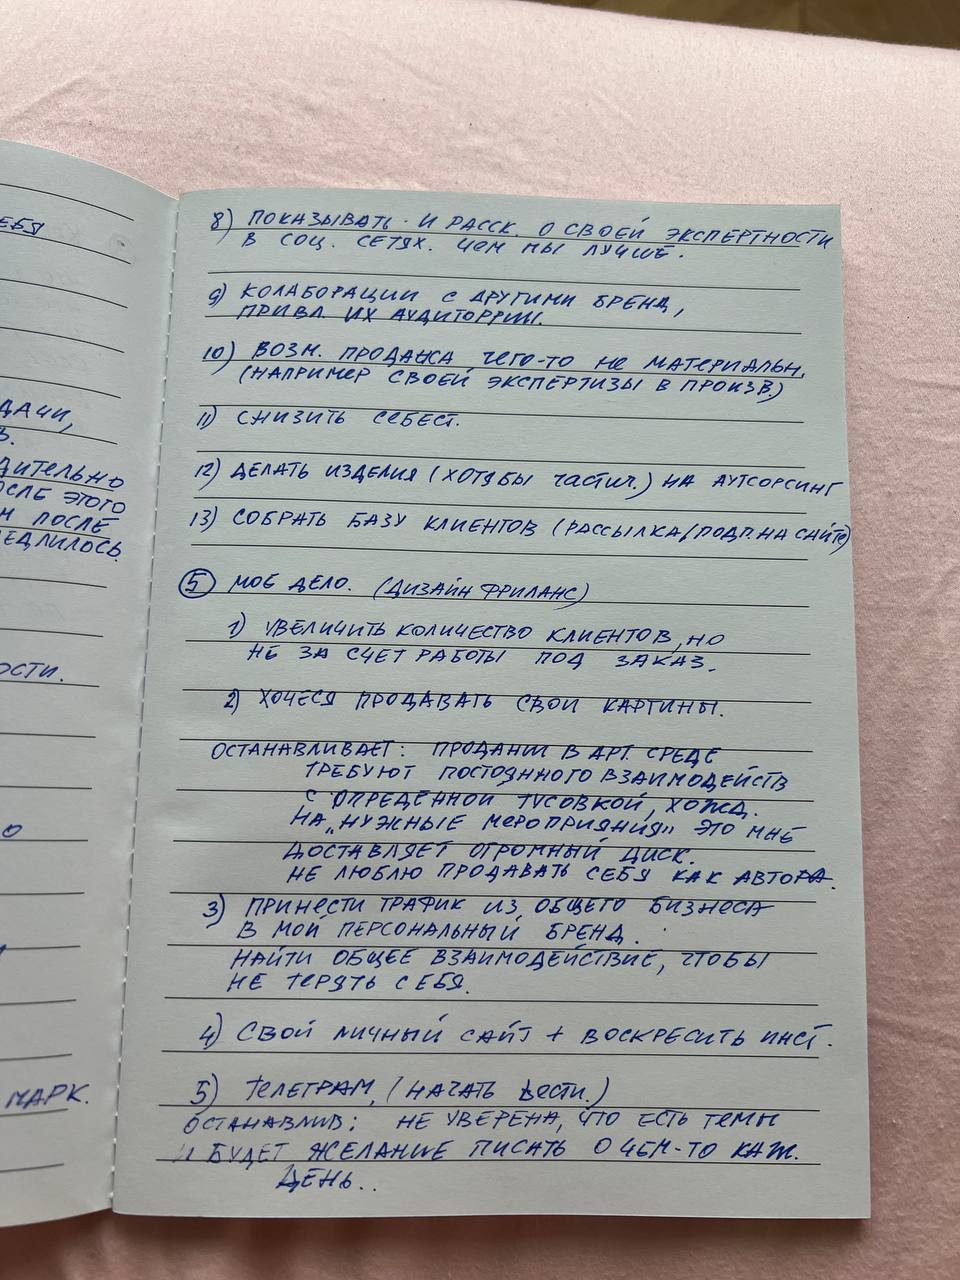 ЕБЯ
ДАЧИ,
В.
ДИТЕЛЬНО
ОСЛЕ ЭТОГО
М ПОСЛЕ
ЕДЛИЛОСЬ.
ОСТИ.
О
МАРК.
8) ПОКАЗЫВАТЬ И РАССК. О СВОЕЙ ЭКСПЕРТНОСТИ
В СОЦ. СЕТЯХ. ЧЕМ МЫ ЛУЧШЕ.
9) КОЛАБОРАЦИИ С ДРУГИМИ БРЕНД,
ПРИВЛ. ИХ АУДИТОРРИИ.
10) ВОЗМ. ПРОДАЖА ЧЕГО-ТО НЕ МАТЕРИАЛЬН.
(НАПРИМЕР СВОЕЙ ЭКСПЕРТИЗЫ В ПРОИЗВ.)
11) СНИЗИТЬ СЕБЕСТ.
12) ДЕЛАТЬ ИЗДЕЛИЯ (ХОТЯ БЫ ЧАСТИЧ.) НА АУТСОРСИНГ
13) СОБРАТЬ БАЗУ КЛИЕНТОВ (РАССЫЛКА/ПОДП. НА САЙТЕ)
5 МОЕ ДЕЛО. (ДИЗАЙН ФРИЛАНС)
1) УВЕЛИЧИТЬ КОЛИЧЕСТВО КЛИЕНТОВ, НО
НЕ ЗА СЧЕТ РАБОТЫ ПОД ЗАКАЗ.
2) ХОЧЕСЯ ПРОДАВАТЬ СВОИ КАРТИНЫ.
ОСТАНАВЛИВАЕТ: ПРОДАЖИ В АРТ. СРЕДЕ
ТРЕБУЮТ ПОСТОЯННОГО ВЗАИМОДЕЙСТВ
С ОПРЕДЕННОЙ ТУСОВКОЙ, ХОЖД.
НА „НУЖНЫЕ МЕРОПРИЯНИЯ" ЭТО МНЕ
ДОСТАВЛЯЕТ ОГРОМНЫЙ ДИСК.
НЕ ЛЮБЛЮ ПРОДАВАТЬ СЕБЯ КАК АВТОРА.
3) ПРИНЕСТИ ТРАФИК ИЗ ОБЩЕГО БИЗНЕСА
В МОЙ ПЕРСОНАЛЬНЫЙ БРЕНД.
НАЙТИ ОБЩЕЕ ВЗАИМОДЕЙСТВИЕ, ЧТОБЫ
НЕ ТЕРЯТЬ СЕБЯ.
4) СВОЙ ЛИЧНЫЙ САЙТ + ВОСКРЕСИТЬ ИНСТ.
5) ТЕЛЕГРАМ, (НАЧАТЬ ВЕСТИ.)
ОСТАНАВЛИВ: НЕ УВЕРЕНА, ЧТО ЕСТЬ ТЕМЫ
И БУДЕТ ЖЕЛАНИЕ ПИСАТЬ О ЧЕМ-ТО КАЖ.
ДЕНЬ..